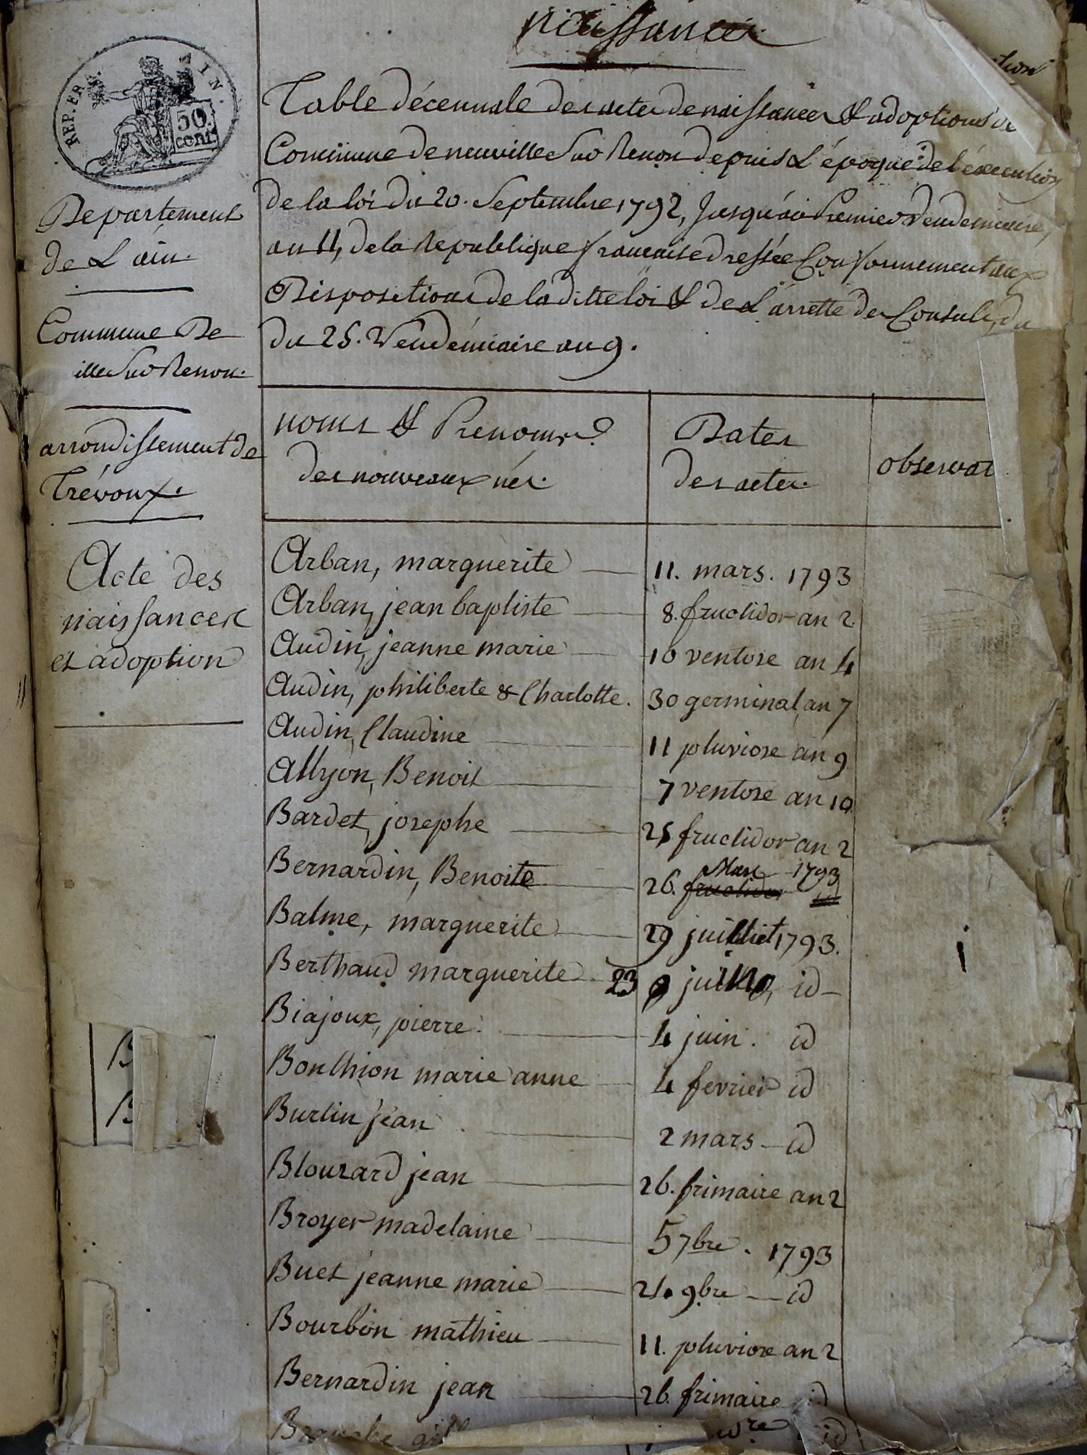 naissances
REP. FRA.
AIN.
50
cent.
Table décennale des actes de naissances & adoptions de
Commune de neuville Sur Renon depuis L'époque de l'execution
de la loi du 20. Septembre 1792, Jusqu'au Premier Vendemiaire,
an 11, de la Republique francaise dressée Conformement aux
Dispositions de la ditte loi & de L'arretté des Consuls, du
du 25. Vendémiaire an 9.
Departement
de L'ain.
Commune De
ille Sur Renon.
arrondissement de
Trévoux.
Acte des
naissances
et adoption
noms & Prenoms
des nouveaux nés.
Dates
des actes.
observat
Arban, marguerite 11. mars. 1793
Arban, jean baptiste 8. fructidor an 2
Audin, jeanne marie 10 ventose an 4
Audin, philiberte & Charlotte. 30 germinal an 7
Audin, Claudine 11 pluviose an 9
Allyon, Benoit 7 ventose an 10
Bardet, josephe 25 fructidor an 2
Bernardin, Benoite 26. fructidor Mars 1793 id
Balme, marguerite 29 juillet 1793.
Berthaud marguerite 23 id
Biajoux, pierre. 4 juin. id
Bonthion marie anne 4 fevrier id
Burlin jean 2 mars id
Blouzard jean 26. frimaire an 2
Broyer madelaine 5 7bre. 1793
Buet jeanne marie 21. 9bre id
Bourbon mathieu 11. pluviose an 2
Bernardin jean 26 frimaire id
B
B
id